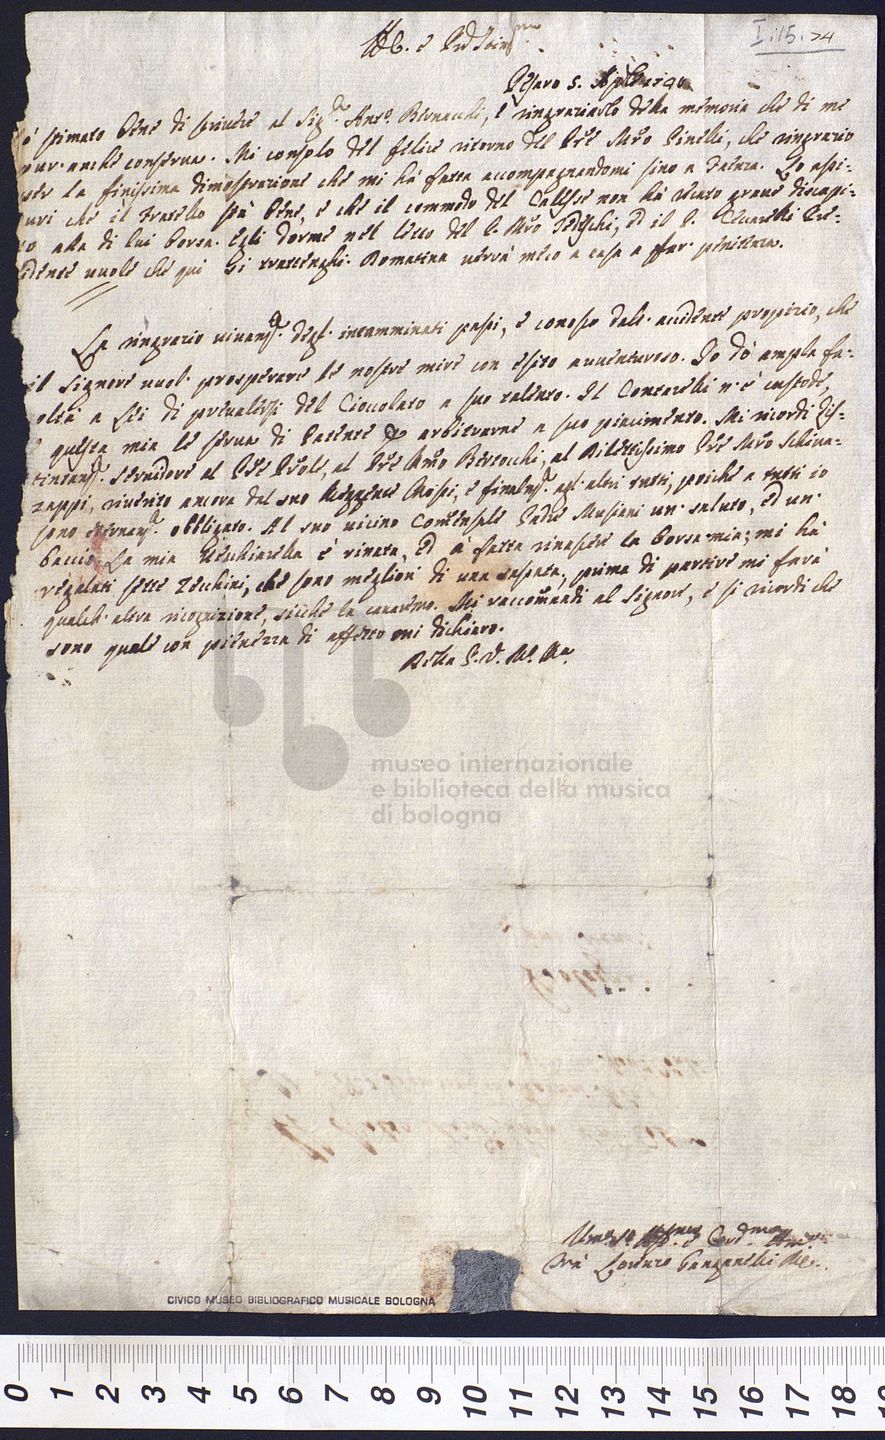 I.15.74
Pesaro 5.
stimato bene di scrivere al Sig.r Ant.o Bernacchi, e ringraziarlo della memoria che di me
pur anche conserva. Mi consolo del felice ritorno del Pre Mro Pinelli, che ringrazio
per la finissima dimostrazione che mi hà fatta accompagnandomi sino a Faenza. Lo assi-
curi che il Fratello stà bene, e che il commodo del Calesse non hà recato grave discapi-
to alla di lui borsa. Egli dorme nel letto del P. Mro Tedeschi, ed il P.
vuole che qui si trattenghi. Romatina verrà meco a casa a far penitenza.
La ringrazio vivam.e degl' incamminati passi, e conosco dall' accidente propizio, che
il Signore vuol prosperare le nostre mire con esito avventuroso. Io dò ampla fa-
coltà a Lei di prevalersi del Cioccolato a suo talento. Il Contarelli n'è custode,
e questa mia le serva di Patente p arbitrarne a suo piacimento. Mi ricordi dis-
tintam.e servidore al Pre Prole, al Pre Mro Bertocchi, al Dilettissimo Pre Mro Schina-
zappi, riverito ancora dal suo Reggente Mospi, e finalm.e agl' altri tutti, poiché a tutti io
sono eternam.e obbligato. Al suo vicino Comensale Padre Musiani un saluto, ed un
baccio. La mia Vecchiarella è rinata, ed à fatta rinascere la borsa mia; mi hà
regalati sette Zecchini, che sono meglioni di una sassata, prima di partire mi farà
qualch' altra ricognizione, sicché la camaremo. Mi raccomandi al Signore, e si ricordi che
sono quale con pienezza di affetto mi dichiaro.
Della P. V. M. Ra
museo internazionale
e biblioteca della musica
di bologna
Frà Lorenzo Ganganelli
CIVICO MUSEO BIBLIOGRAFICO MUSICALE BOLOGNA
0 1 2 3 4 5 6 7 8 9 10 11 12 13 14 15 16 17 18